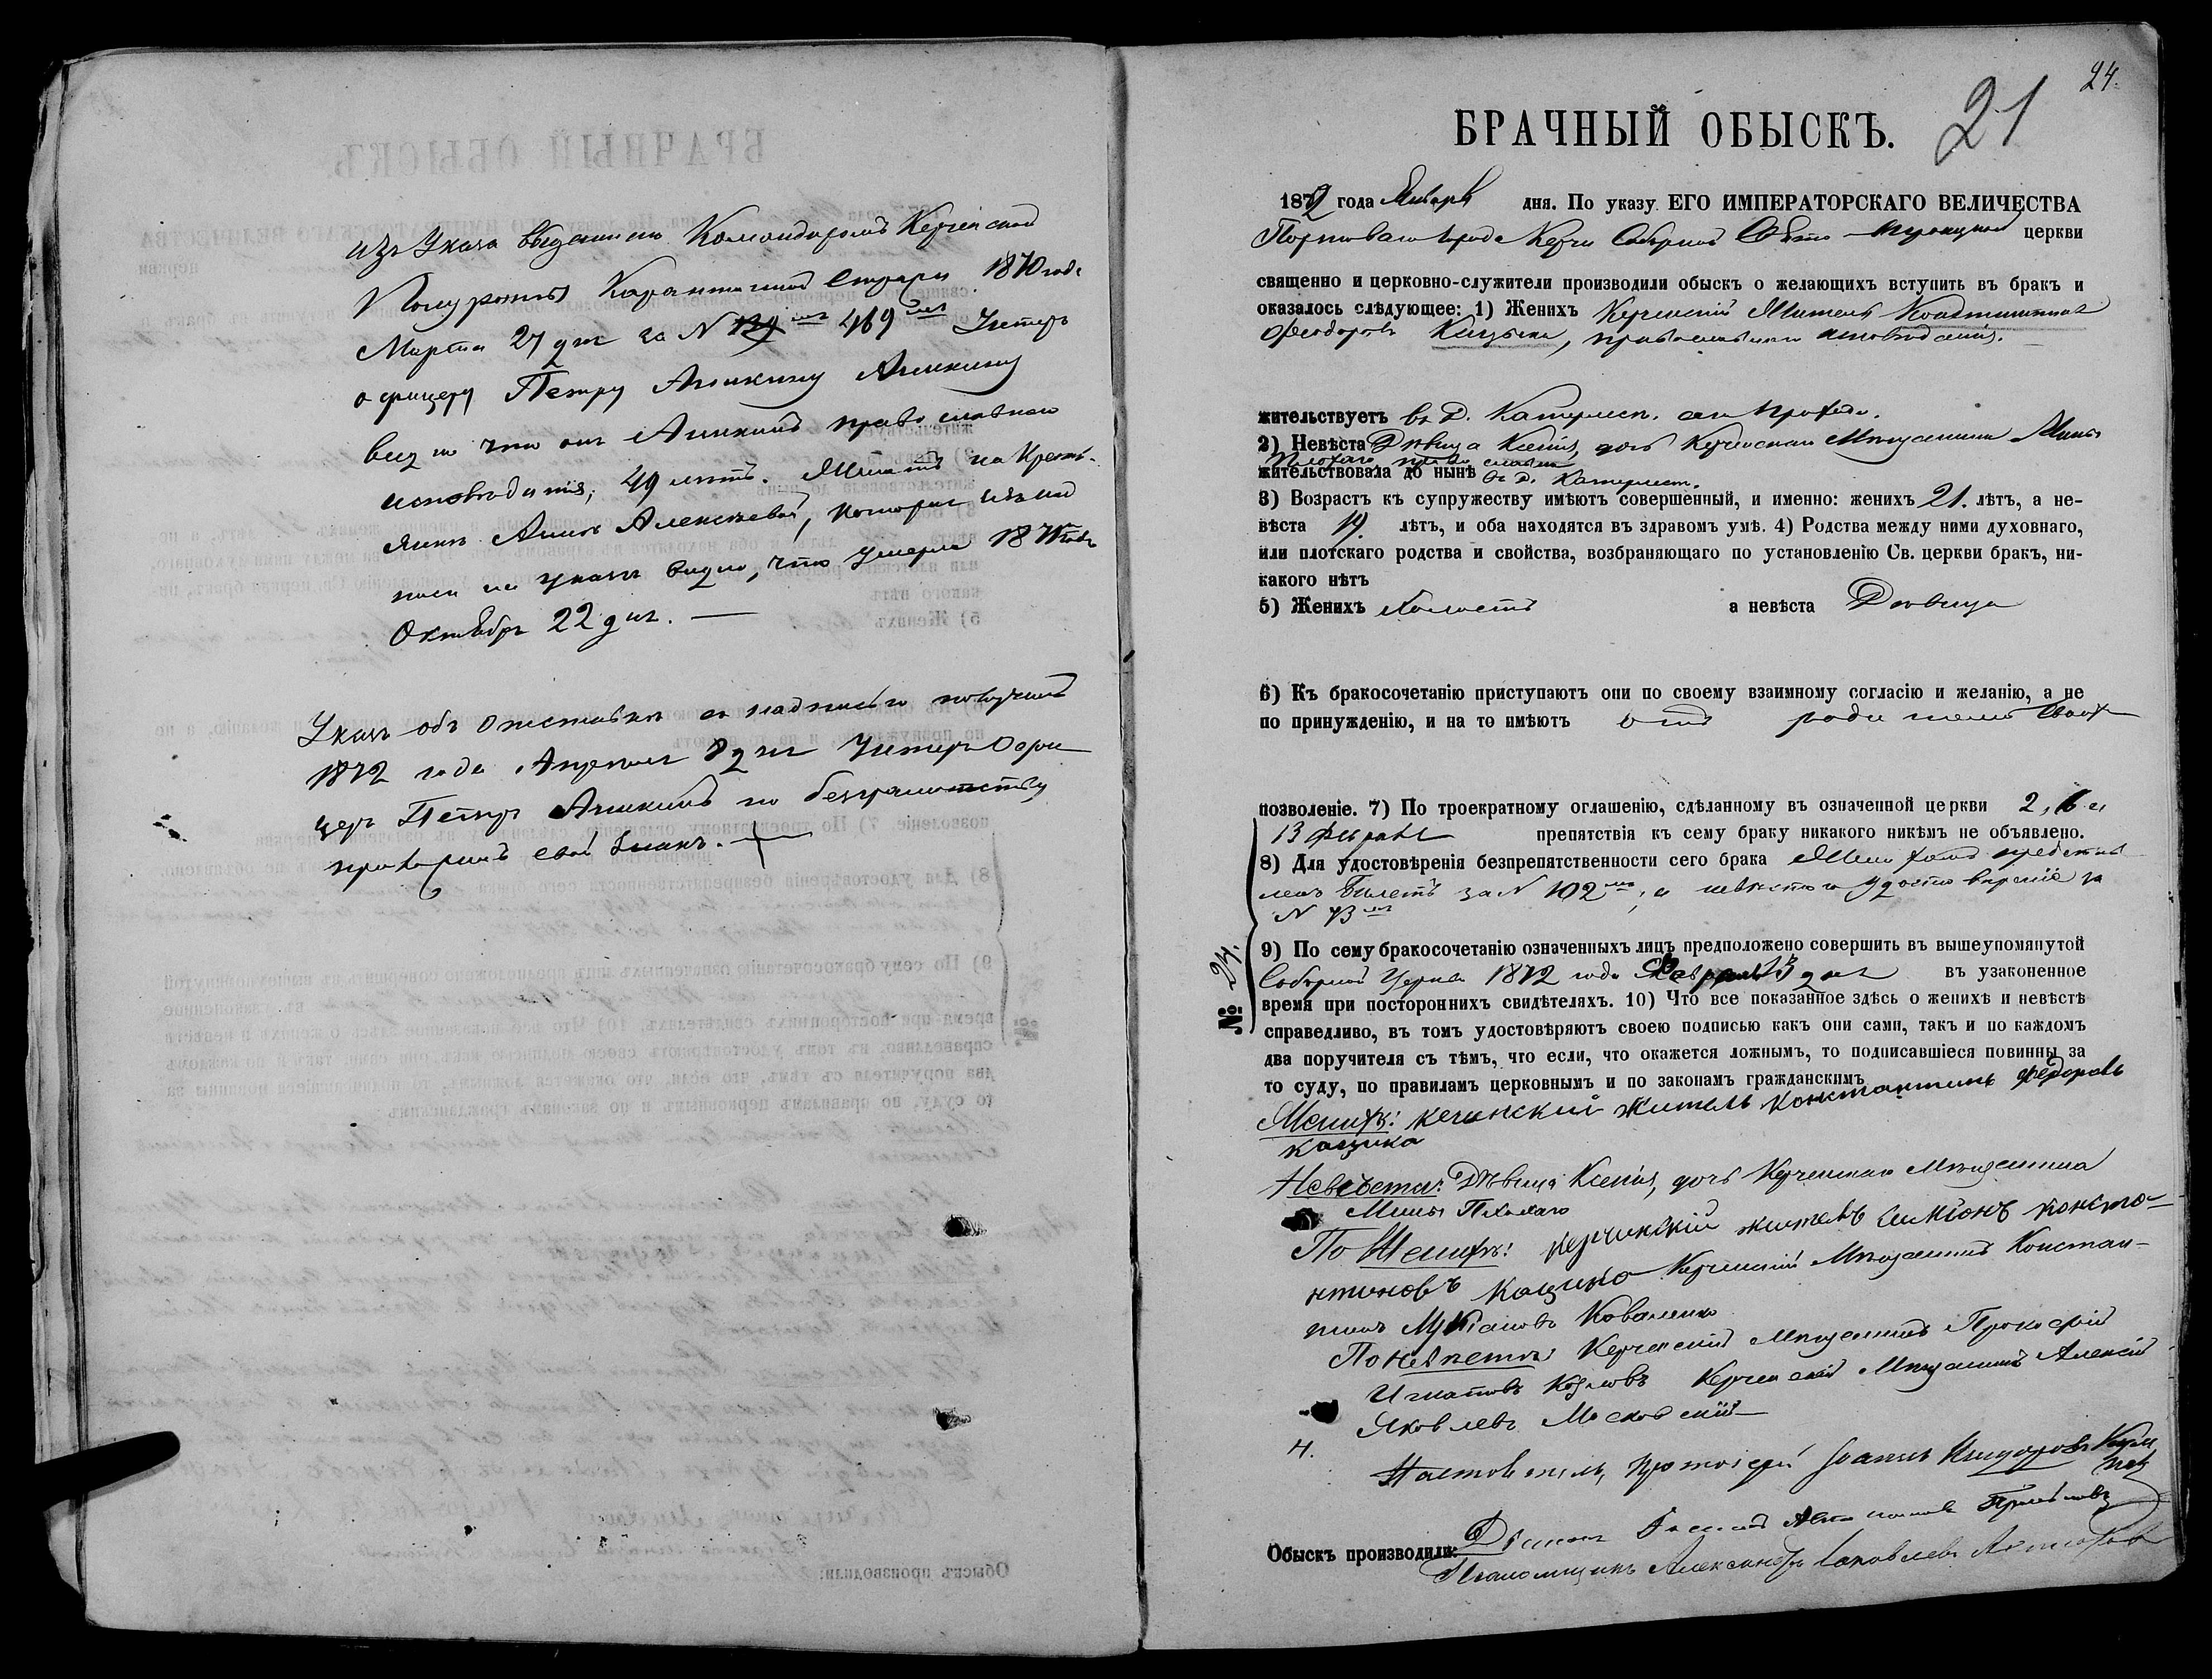 изъ Указа выданнаго Командиромъ Керченской
Полуроты Карантинной Стражи 1870 года
Марта 27 дня за N 469мъ Унтеръ
офицеру Петру Аникину Аникину
видно что онъ Аникинъ православнаго
исповѣданія, 49 лѣтъ. Женатъ на
Аннѣ Алексѣевой, которая
на указѣ видно, что умерла 1871 года
Октября 22 дня. —
Указъ объ отставкѣ съ надписью получилъ
1872 года Апрѣля 8 дня Унтеръ Офи
церъ Петръ Аникинъ по безграмотству
свой знакъ. +
24.
21
БРАЧНЫЙ ОБЫСКЪ.
1872 года Января дня. По указу ЕГО ИМПЕРАТОРСКАГО ВЕЛИЧЕСТВА
Портоваго города Керчи Соборной Свято-Троицкой церкви
священно и церковно-служители производили обыскъ о желающихъ вступить въ бракъ и
оказалось слѣдующее: 1) Женихъ Керченскій Житель Константинъ
Феодоровъ православнаго исповѣданія.
жительствуетъ въ д.
2) Невѣста Дѣвица Ксенія, дочь Керченскаго Мѣщанина Мины
жительствовала до нынѣ въ д.
3) Возрастъ къ супружеству имѣютъ совершенный, и именно: женихъ 21. лѣтъ, а не-
вѣста 19. лѣтъ, и оба находятся въ здравомъ умѣ. 4) Родства между ними духовнаго,
или плотскаго родства и свойства, возбраняющаго по установленію Св. церкви бракъ, ни-
какого нѣтъ
5) Женихъ Холостъ а невѣста Дѣвица
6) Къ бракосочетанію приступаютъ они по своему взаимному согласію и желанію, а не
по принужденію, и на то имѣютъ отъ родителей своихъ
позволеніе. 7) По троекратному оглашенію, сдѣланному въ означенной церкви 2, 6 и
13 Февраля препятствія къ сему браку никакого никѣмъ не объявлено.
8) Для удостовѣренія безпрепятственности сего брака Женихомъ представ
ленъ Билетъ за N 102мъ, а невѣстою удостовѣреніе за
N 73мъ
№ 24.
9) По сему бракосочетанію означенныхъ лицъ предположено совершить въ вышеупомянутой
Соборной Церкви 1872 года Февраля 13 дня въ узаконенное
время при постороннихъ свидѣтеляхъ. 10) Что все показанное здѣсь о женихѣ и невѣстѣ
справедливо, въ томъ удостовѣряютъ своею подписью какъ они сами, такъ и по каждомъ
два поручителя съ тѣмъ, что если, что окажется ложнымъ, то подписавшіеся повинны за
то суду, по правиламъ церковнымъ и по законамъ гражданскимъ
Женихъ: кечинский житель константинъ Федоровъ
кацика
Невѣста: Дѣвица Ксенія, дочь Керченскаго Мѣщанина
Мины
По Женихѣ: керчинский житель симионъ конста-
нтиновъ кацико Керченскій Мѣщанинъ Констан-
тинъ Коваленко
По невѣстѣ: Керченскій Мѣщанинъ Прокофій
Игнатовъ Козловъ Керченскій Мѣщанинъ Алексѣй
Яковлевъ Московскій
Настоятель, протоіерей Іоаннъ
Обыскъ производили: Діаконъ
Псаломщикъ Александръ Яковлевъ